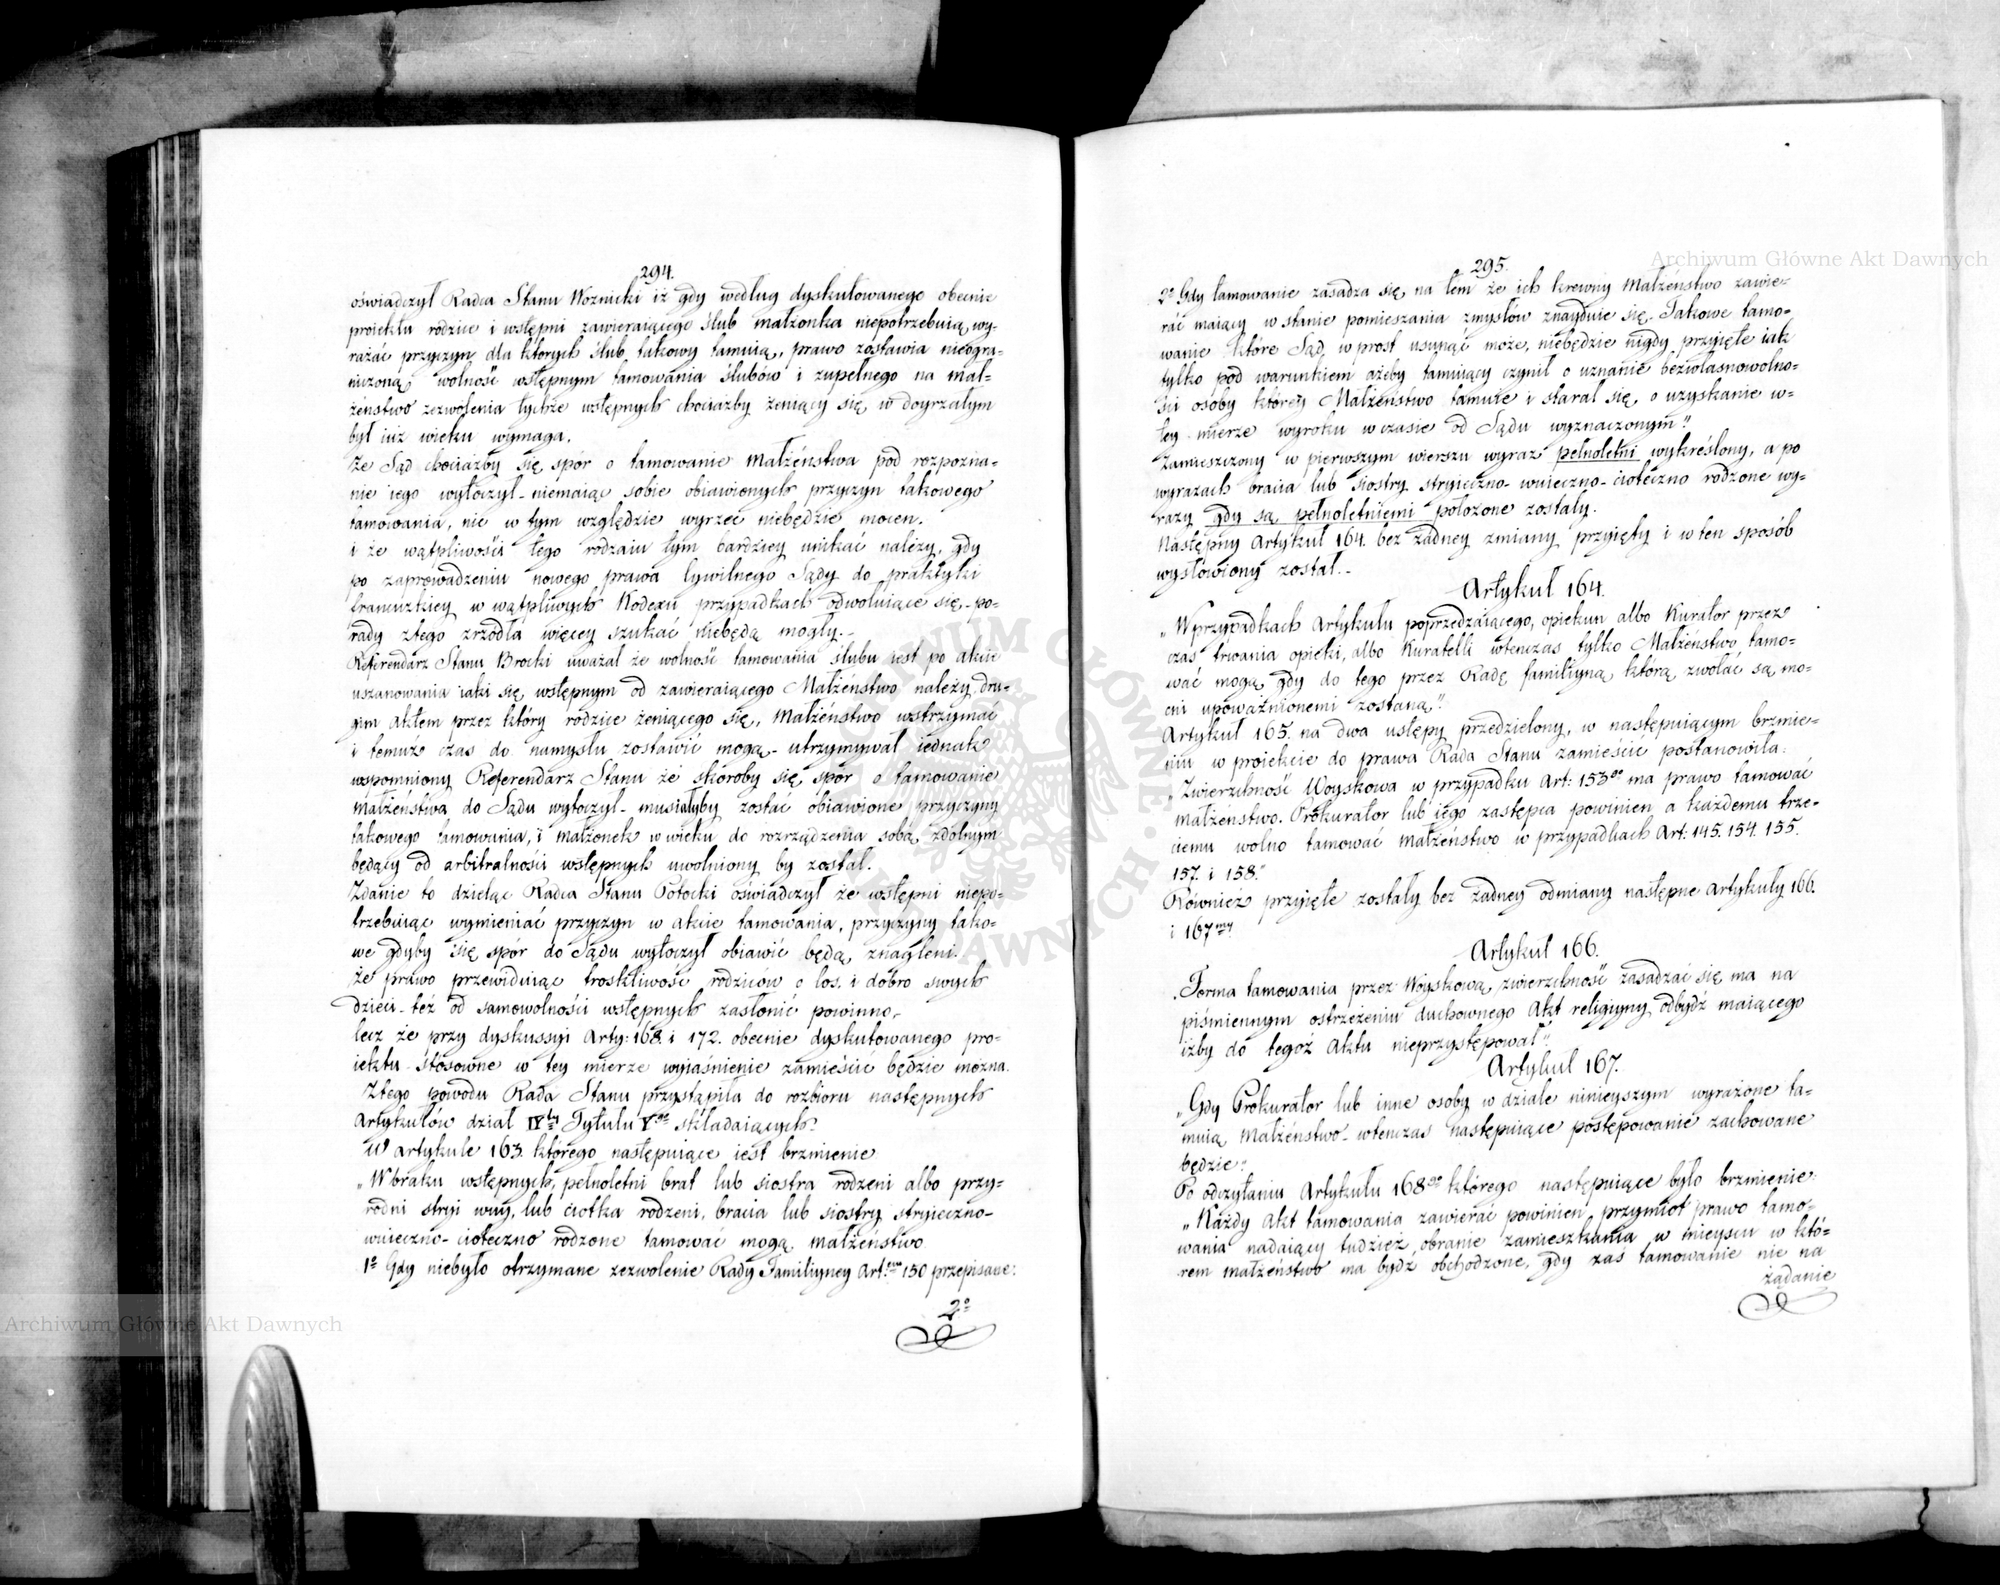 294.
oświadczył Radca Stanu Woznicki iż gdy według dyskutowanego obecnie
proiektu rodzice i wstępni zawieraiącego ślub małżonka niepotrzebuią wy-
rażać przyczyn dla których ślub takowy tamuią, prawo zostawia nieogra-
niczoną wolność wstępnym tamowania ślubów i zupełnego na mał-
żeństwo zezwolenia tychże wstępnych chociażby żeniący się w doyrzałym
był iuż wieku wymaga.
Że Sąd chociażby się spór o tamowanie Małżeństwa pod rozpozna-
nie iego wytoczył - niemaiąc sobie obiawionych przyczyn takowego
tamowania, nic w tym względzie wyrzec niebędzie mocen.
i że wątpliwości tego rodzaiu tym bardziey unikać należy, gdy
po zaprowadzeniu nowego prawa Cywilnego Sądy do praktyki
francuzkiey w wątpliwych Kodexu przypadkach odwołuiące się - po-
rady ztego zrzódła więcey szukać niebędą mogły. -
Referendarz Stanu Brocki uważał że wolność tamowania ślubu iest po akcie
uszanowania iaki się wstępnym od zawieraiącego Małżeństwo należy, dru-
gim aktem przez który rodzice żeniącego się, Małżeństwo wstrzymać
i temuż czas do namysłu zostawić mogą - utrzymywał iednak
wspomniony Referendarz Stanu że skoroby się spór o tamowanie
Małżeństwa do Sądu wytoczył - musiałyby zostać obiawione przyczyny
takowego tamowania, i małżonek w wieku do rozrządzenia sobą zdolnym
będący od arbitralności wstępnych uwolniony by został.
Zdanie to dzieląc Radca Stanu Potocki oświadczył że wstępni niepo-
trzebuiąc wymieniać przyczyn w akcie tamowania, przyczyny tako-
we gdyby się spór do Sądu wytoczył obiawić będą znagleni.
Że prawo przewiduiąc troskliwość rodziców o los i dobro swych
dzieci - też od samowolności wstępnych zasłonić powinno,
lecz że przy dyskussyi Arty: 168. i 172. obecnie dyskutowanego pro-
iektu stosowne w tey mierze wyiaśnienie zamieścić będzie można.
Ztego powodu Rada Stanu przystąpiła do rozbioru następnych
Artykułów dział IVty Tytułu Vgo składaiących.
W Artykule 163. którego następuiące iest brzmienie
„W braku wstępnych, pełnoletni brat lub siostra rodzeni albo przy-
rodni stryi wuy, lub ciotka rodzeni, bracia lub siostry stryieczno-
wuieczno - cioteczno rodzone tamować mogą małżeństwo
1o Gdy niebyło otrzymane zezwolenie Rady Familiyney Art. 150 przepisane:
2o
295.
2o Gdy tamowanie zasadza się na tem że ich krewny Małżeństwo zawie-
rać maiący w stanie pomieszania zmysłów znayduie się. Takowe tamo-
wanie które Sąd w prost usunąć może, niebędzie nigdy przyięte iak
tylko pod warunkiem ażeby tamuiący czynił o uznanie bezwłasnowolno-
ści osoby którey Małżeństwo tamuie i starał się o uzyskanie w-
tey mierze wyroku w czasie od Sądu wyznaczonym".
Zamieszczony w pierwszym wierszu wyraz pełnoletni wykreślony, a po
wyrazach bracia lub siostry stryieczno - wuieczno - cioteczno rodzone wy-
razy gdy są pełnoletniemi położone zostały.
Następny Artykuł 164. bez żadney zmiany przyięty i w ten sposób
wysłowiony został. -
Artykuł 164.
„W przypadkach Artykułu poprzedzaiącego, opiekun albo Kurator przez
czas trwania opieki, albo Kurateli wtenczas tylko Małżeństwo tamo-
wać mogą gdy do tego przez Radę familiyną którą zwołać są mo-
cni upoważnionemi zostaną".
Artykuł 165. na dwa ustępy przedzielony, w następuiącym brzmie-
niu w proiekcie do prawa Rada Stanu zamieścić postanowiła:
„Zwierzchność Woyskowa w przypadku Art: 153go ma prawo tamować
małżeństwo. Prokurator lub iego zastępca powinien a każdemu trze-
ciemu wolno tamować małżeństwo w przypadkach Art: 145. 154. 155.
157. i 158."
Również przyięte zostały bez żadney odmiany następne Artykuły 166.
i 167my
Artykuł 166.
„Forma tamowania przez Woyskową zwierzchność zasadzać się ma na
piśmiennym ostrzeżeniu duchownego Akt religiyny odbydź maiącego
iżby do tegoż Aktu nieprzystępował".
Artykuł 167.
„Gdy Prokurator lub inne osoby w dziale ninieyszym wyrażone ta-
muią Małżeństwo - wtenczas następuiące postępowanie zachowane
będzie:
Po odczytaniu Artykułu 168go którego następuiące było brzmienie:
„Każdy Akt tamowania zawierać powinien przymiot prawo tamo-
wania nadaiący tudzież obranie zamieszkania w mieyscu w któ-
rem małżeństwo ma bydź obchodzone, gdy zaś tamowanie nie na
żądanie
Archiwum Główne Akt Dawnych
Archiwum Główne Akt Dawnych
ARCHIWUM GŁÓWNE AKT DAWNYCH